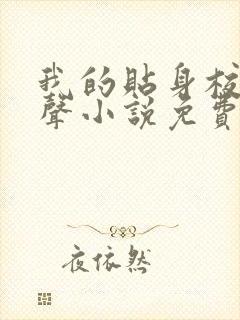 我的貼身校
聲小說免費
夜依然